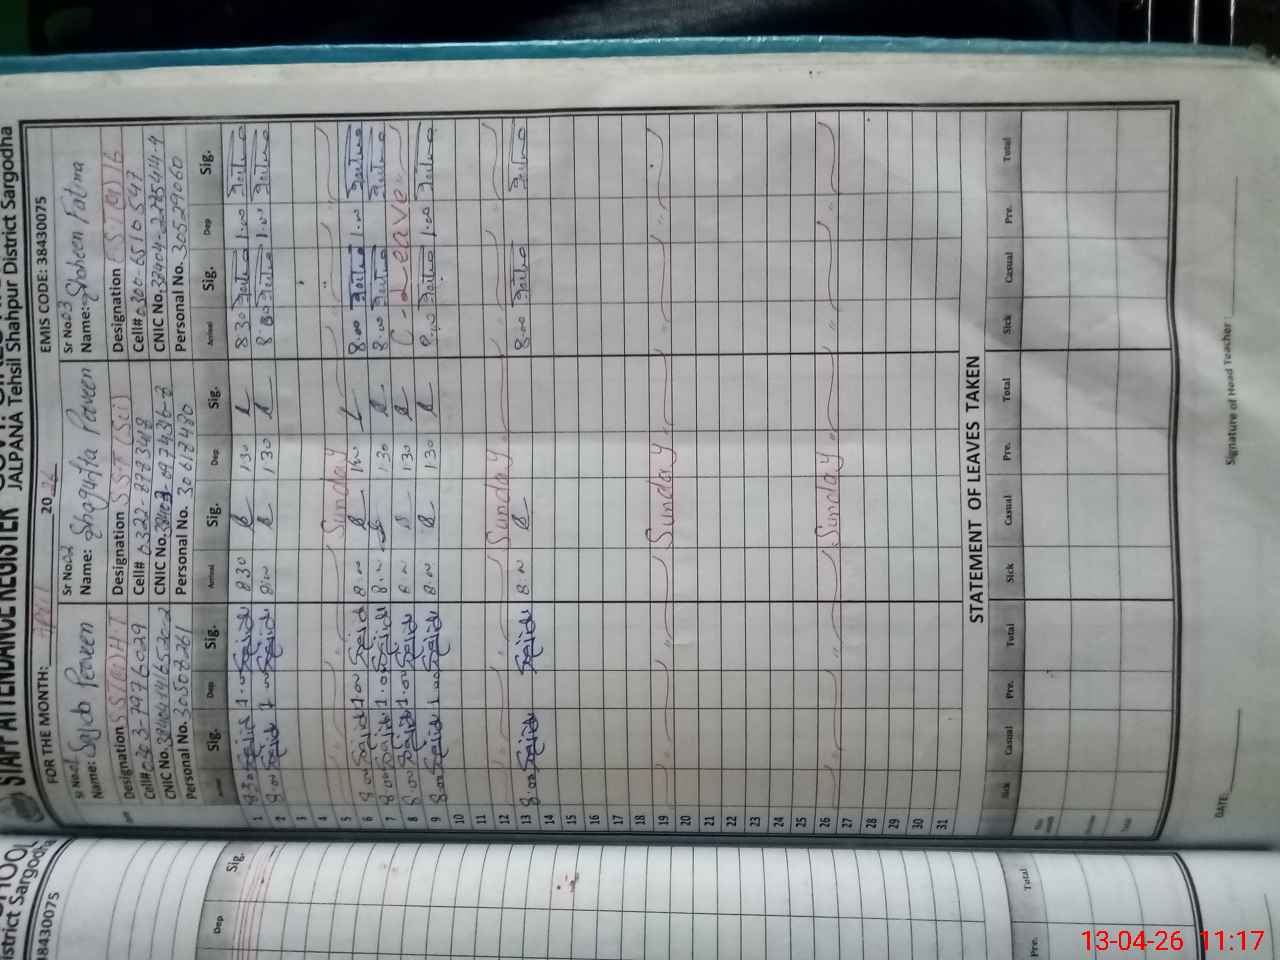 STAFF ATTENDANCE REGISTER
JALPANA Tehsil Shahpur District Sargodha
FOR THE MONTH: April 20 26 EMIS CODE: 38430075
Sr No. 01 Sr No. 02 Sr No. 03
Name: Sajida Perveen Name: Shagufta Perveen Name: Shaheen Fatima
Designation Designation S.S.T (Sci) Designation
Cell# 0303-7976029 Cell# 0322-8773418 Cell# 0300-6510547
CNIC No. CNIC No. CNIC No.
Personal No. Personal No. 30617480 Personal No. 30529060
Arrival Sig. Dep Sig. Arrival Sig. Dep. Sig. Arrival Sig. Dep Sig.
1 8.30 Sajida 1.00 Sajida 8.30 1.30 8.30 Fatima 1.00 Fatima
2 8.00 Sajida 1.00 Sajida 8.00 1.30 8.30 Fatima 1.00 Fatima
3
4
5 Sunday
6 8.00 Sajida 1.00 Sajida 8.00 1.00 8.00 Fatima 1.00 Fatima
7 8.00 Sajida 1.00 Sajida 8.00 1.30 8.00 Fatima Fatima
8 8.00 Sajida 1.00 Sajida 8.00 1.30 C - Leave
9 8.00 Sajida 1.00 Sajida 8.00 1.30 8.00 Fatima 1.00 Fatima
10
11
12 Sunday
13 8.00 Sajida Sajida 8.00 8.00 Fatima Fatima
14
15
16
17
18
19 Sunday
20
21
22
23
24
25
26 Sunday
27
28
29
30
31
STATEMENT OF LEAVES TAKEN
Sick Casual Pre. Total Sick Casual Pre. Total Sick Casual Pre. Total
Total
DATE: Signature of Head Teacher:
HOOL
istrict Sargodha
38430075
Dep Sig.
Pre. Total
13-04-26 11:17